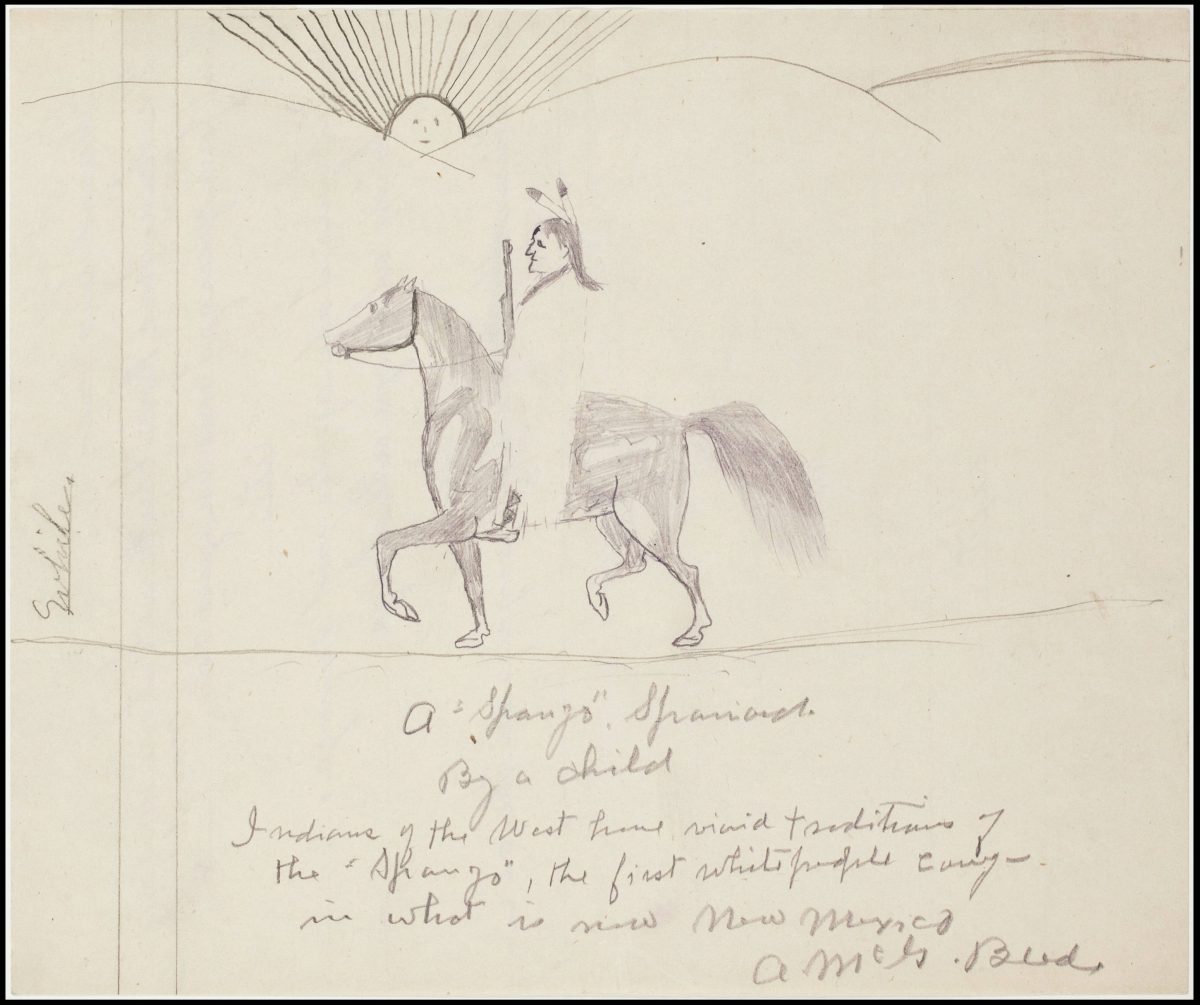 A "Spanzo". Spaniard.
By a child
Indians of the West have vivid traditions of
the "Spanzo", the first white people coming
in what is now New Mexico
A McG. Beede